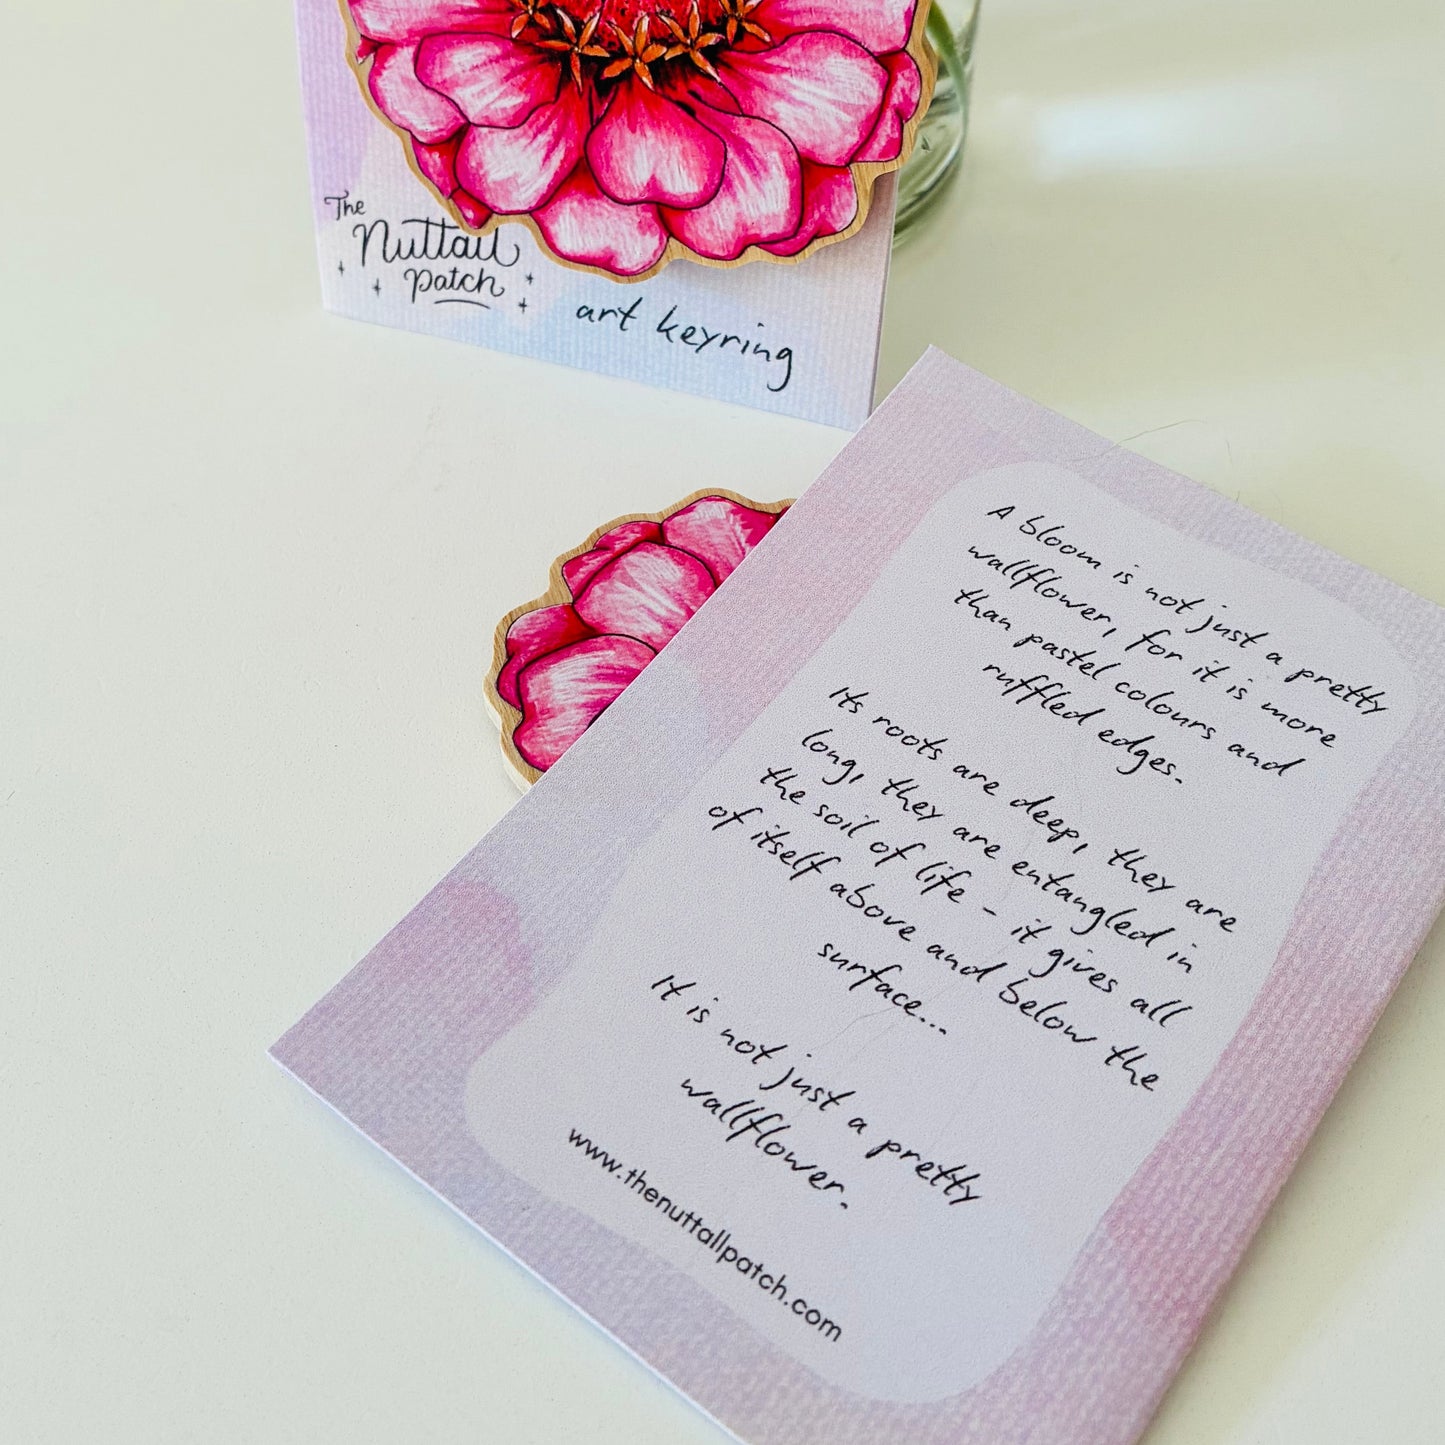 The
Nuttall
Patch
art keyring
A bloom is not just a pretty
wallflower, for it is more
than pastel colours and
ruffled edges.
Its roots are deep, they are
long, they are entangled in
the soil of life - it gives all
of itself above and below the
surface...
It is not just a pretty
wallflower.
www.thenuttallpatch.com